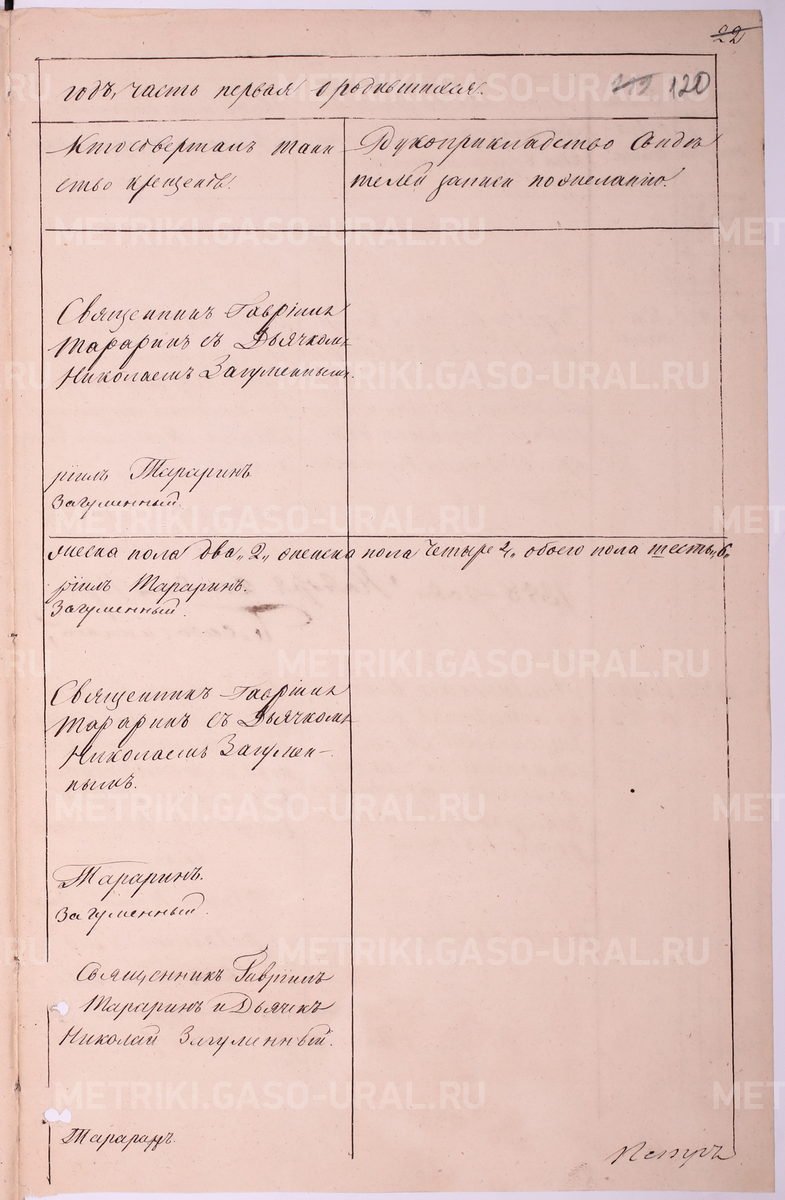 22
годъ, часть первая о родившихся.
119 120
Кто совершалъ таин
ство крещенія.
Рукоприкладство свидѣ
телей записи по желанію.
Священникъ Гавріилъ
Тараринъ съ Дьячкомъ
Николаемъ Загуменнымъ.
ріилъ Тараринъ
Загуменный.
жеска пола два „2„ женска пола четыре 4„ обоего пола шесть „6„
ріилъ Тараринъ.
Загуменный.
Священникъ Гавріилъ
Тараринъ съ Дьячкомъ
Николаемъ Загумен-
нымъ.
Тараринъ.
Загуменный.
Священникъ Гавріилъ
Тараринъ и Дьячекъ
Николай Загуменный.
Тараринъ.
METRIKI.GASO-URAL.RU